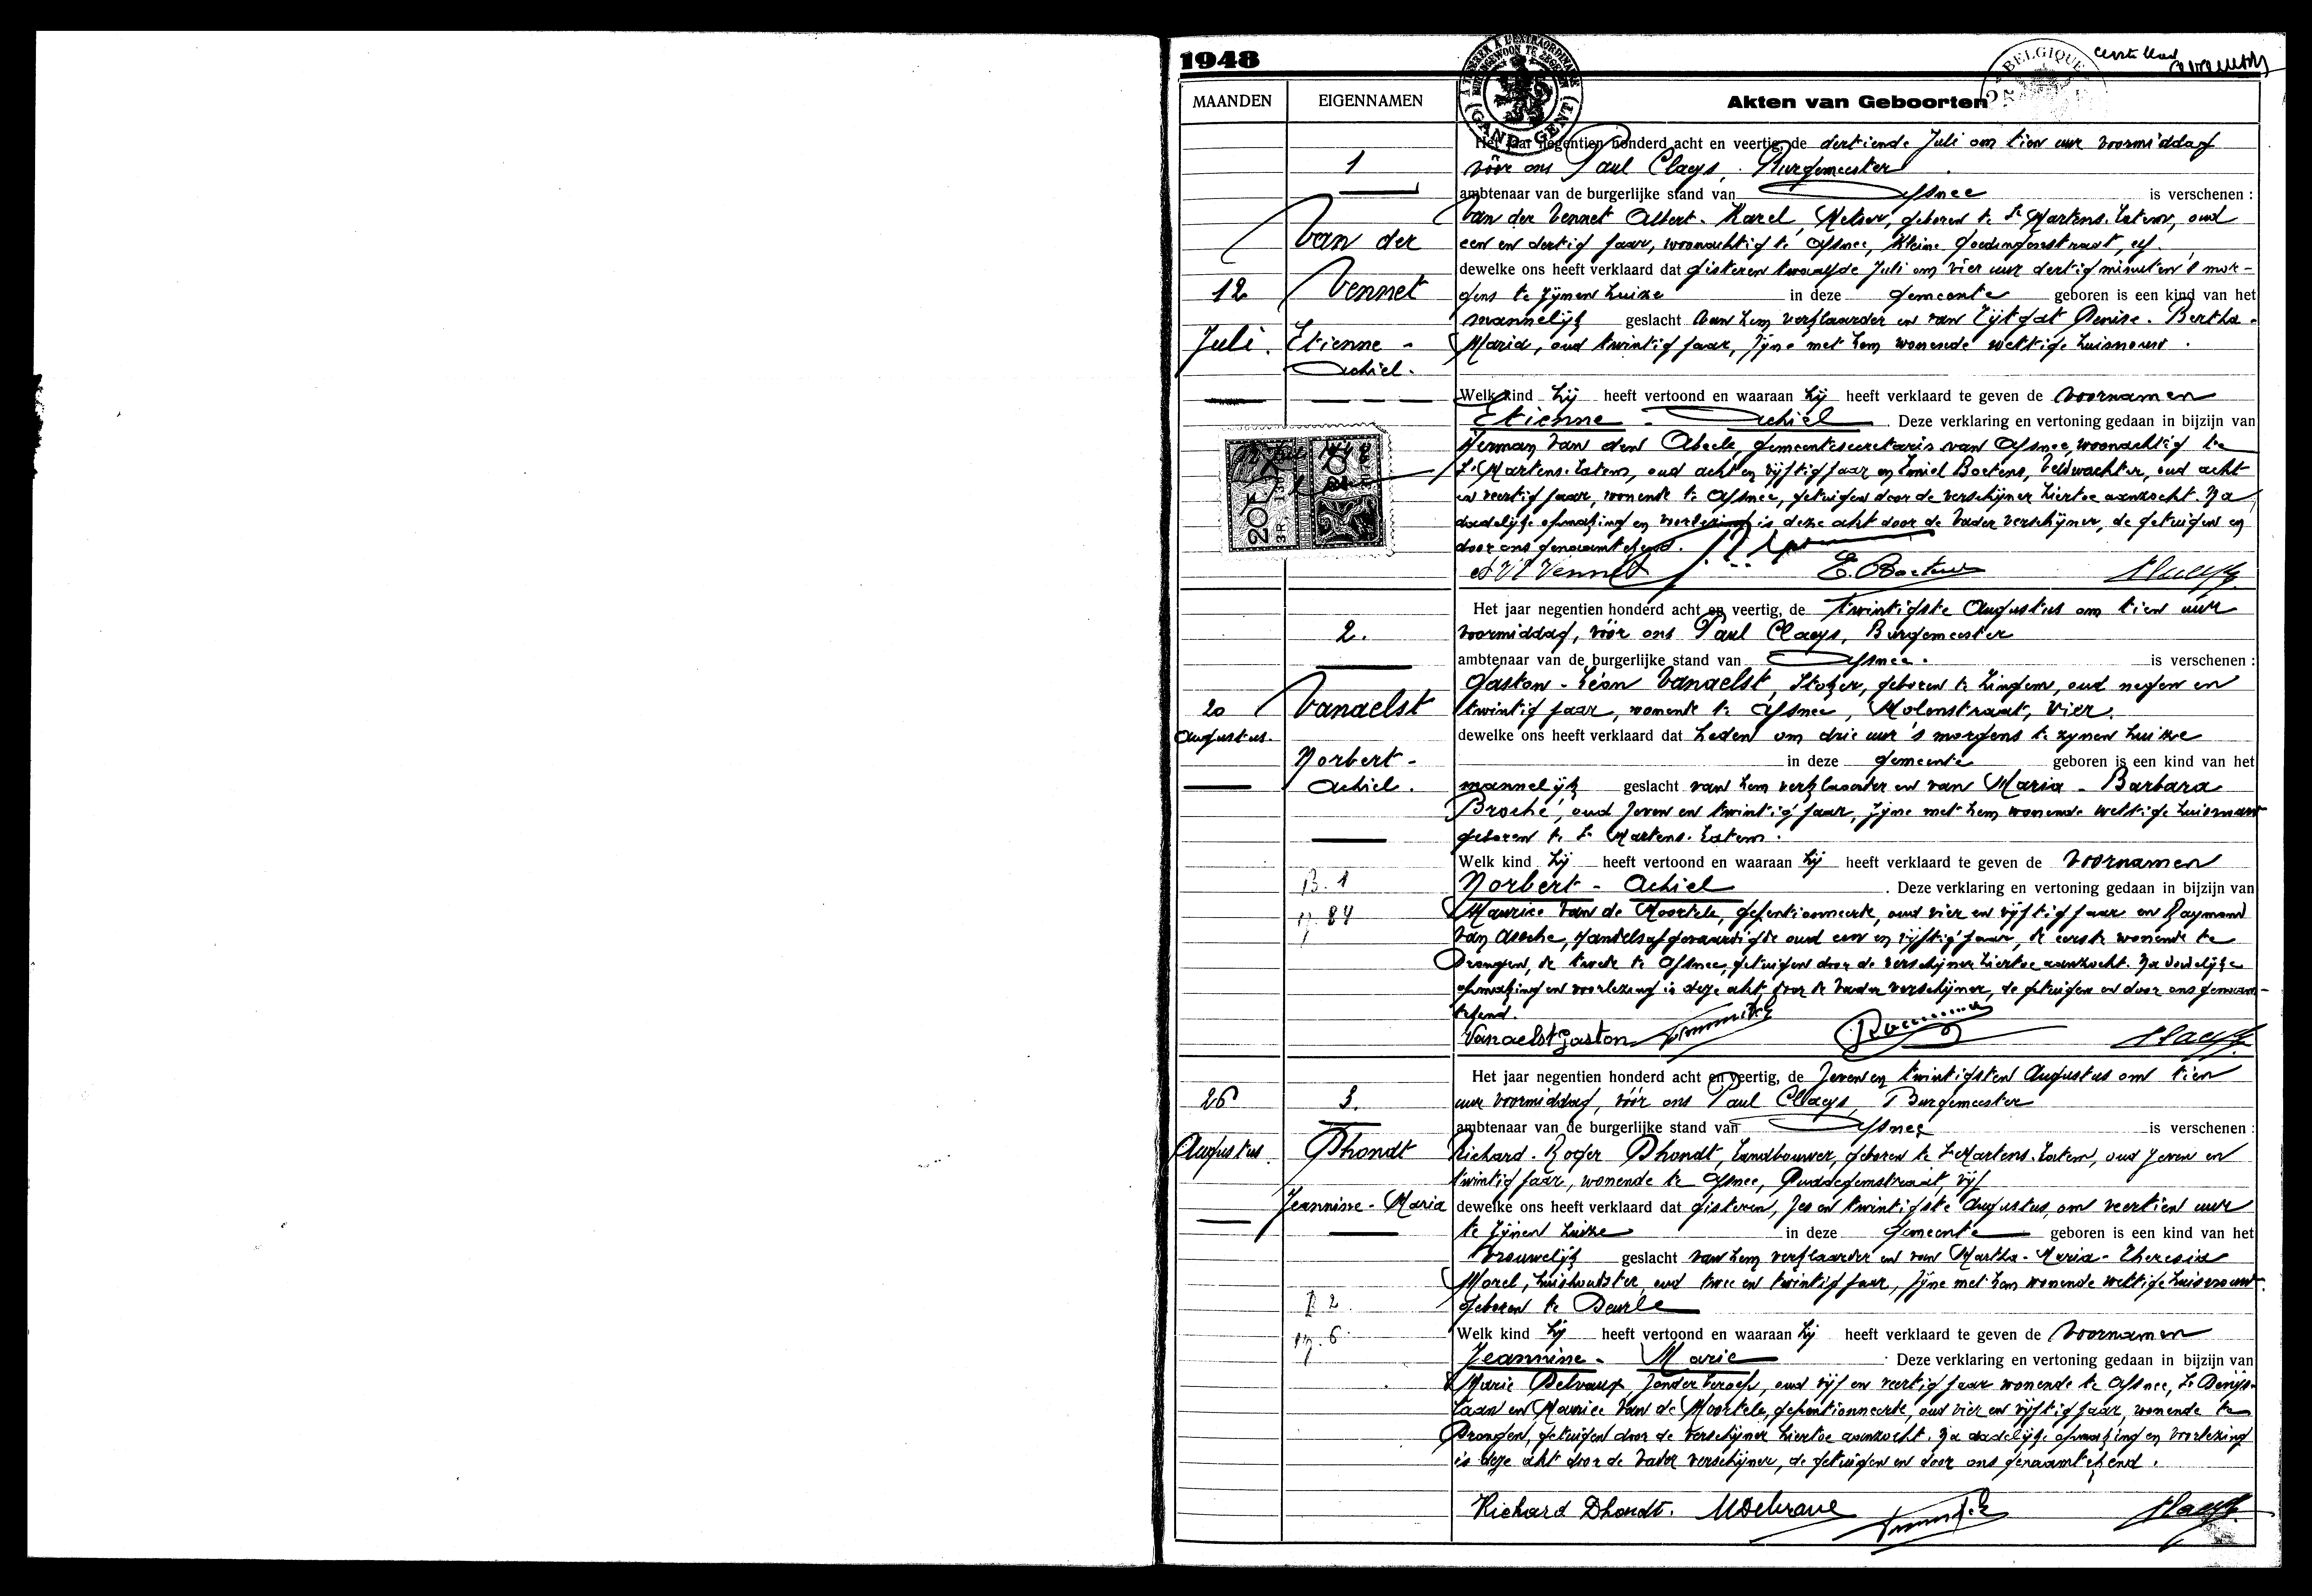 1948
eerste blad
MAANDEN EIGENNAMEN Akten van Geboorten
A TIMBRER A L'EXTRAORDINAIRE
GAND - GENT
BELGIQUE
1
12
Juli.
Van der
Vennet
Etienne -
Achiel.
Het jaar negentien honderd acht en veertig, de dertiende Juli om tien uur voormiddag
vóór ons Paul Claeys, Burgemeester
ambtenaar van de burgerlijke stand van Afsnee is verschenen :
Van der Vennet Albert - Karel, Metser, geboren te St Martens-Latem, oud
een en dertig jaar, woonachtig te Afsnee, Kleine Goedingenstraat, elf.
dewelke ons heeft verklaard dat gisteren twaalfde Juli om vier uur dertig minuten 's mor-
gens te zijnen huize in deze gemeente geboren is een kind van het
mannelijk geslacht van hem verklaarder en van Zijtgat Denise - Bertha -
Maria, oud twintig jaar, zijne met hem wonende wettige huisvrouw.
Welk kind hij heeft vertoond en waaraan hij heeft verklaard te geven de voornamen
Etienne - Achiel. Deze verklaring en vertoning gedaan in bijzijn van
Herman Van den Abeele, gemeentesecretaris van Afsnee, woonachtig te
St Martens-Latem, oud acht en vijftig jaar en Emiel Boetens, veldwachter, oud acht
en veertig jaar, wonende te Afsnee, getuigen door de verschijner hiertoe aanzocht. Na
dadelijke opmaking en voorlezing is deze akt door de vader verschijner, de getuigen en
door ons genaamtekend.
20F
A VD Vennet E. Boetens PClaeys
2.
20
Augustus.
Vanaelst
Norbert -
Achiel.
B. 1
n. 84
Het jaar negentien honderd acht en veertig, de twintigste Augustus om tien uur
voormiddag, vóór ons Paul Claeys, Burgemeester
ambtenaar van de burgerlijke stand van Afsnee. is verschenen :
Gaston - Léon Vanaelst, Stoker, geboren te Zingem, oud negen en
twintig jaar, wonende te Afsnee, Molenstraat, vier.
dewelke ons heeft verklaard dat heden om drie uur 's morgens te zynen huize
in deze gemeente geboren is een kind van het
mannelijk geslacht van hem verklaarder en van Maria - Barbara
Broché, oud zeven en twintig jaar, zijne met hem wonende wettige huisvrouw
geboren te St Martens-Latem.
Welk kind hij heeft vertoond en waaraan hij heeft verklaard te geven de voornamen
Norbert - Achiel. Deze verklaring en vertoning gedaan in bijzijn van
Maurice Van de Moortele, gepentionneerde, oud vier en vijftig jaar en Raymond
Van Assche, handelsafgevaardigde oud een en vijftig jaar, de eerste wonende te
Drongen, de tweede te Afsnee, getuigen door de verschijner hiertoe aanzocht. Na dadelijke
opmaking en voorlezing is deze akt door de vader verschijner, de getuigen en door ons genaam-
tekend.
Vanaelst Gaston PClaeys
3.
26
Augustus.
Dhondt
Jeannine - Maria
B 2.
n. 6
Het jaar negentien honderd acht en veertig, de zeven en twintigsten Augustus om tien
uur voormiddag, vóór ons Paul Claeys, Burgemeester
ambtenaar van de burgerlijke stand van Afsnee is verschenen :
Richard - Roger Dhondt, Landbouwer, geboren te St Martens-Latem, oud zeven en
twintig jaar, wonende te Afsnee, Duddegemstraat, vijf
dewelke ons heeft verklaard dat gisteren, zes en twintigste Augustus, om veertien uur
te zijnen huize in deze gemeente geboren is een kind van het
vrouwelijk geslacht van hem verklaarder en van Martha - Maria - Theresia
Morel, huishoudster, oud twee en twintig jaar, zijne met hem wonende wettige huisvrouw
geboren te Deurle
Welk kind hij heeft vertoond en waaraan hij heeft verklaard te geven de voornamen
Jeannine - Marie. Deze verklaring en vertoning gedaan in bijzijn van
Marie Delvaux, zonder beroep, oud vijf en veertig jaar wonende te Afsnee, St Denijs-
laan en Maurice Van de Moortele, gepentionneerde, oud vier en vijftig jaar, wonende te
Drongen, getuigen door de verschijner hiertoe aanzocht. Na dadelijke opmaking en voorlezing
is deze akt door de vader verschijner, de getuigen en door ons genaamtekend.
Richard Dhondt. PClaeys